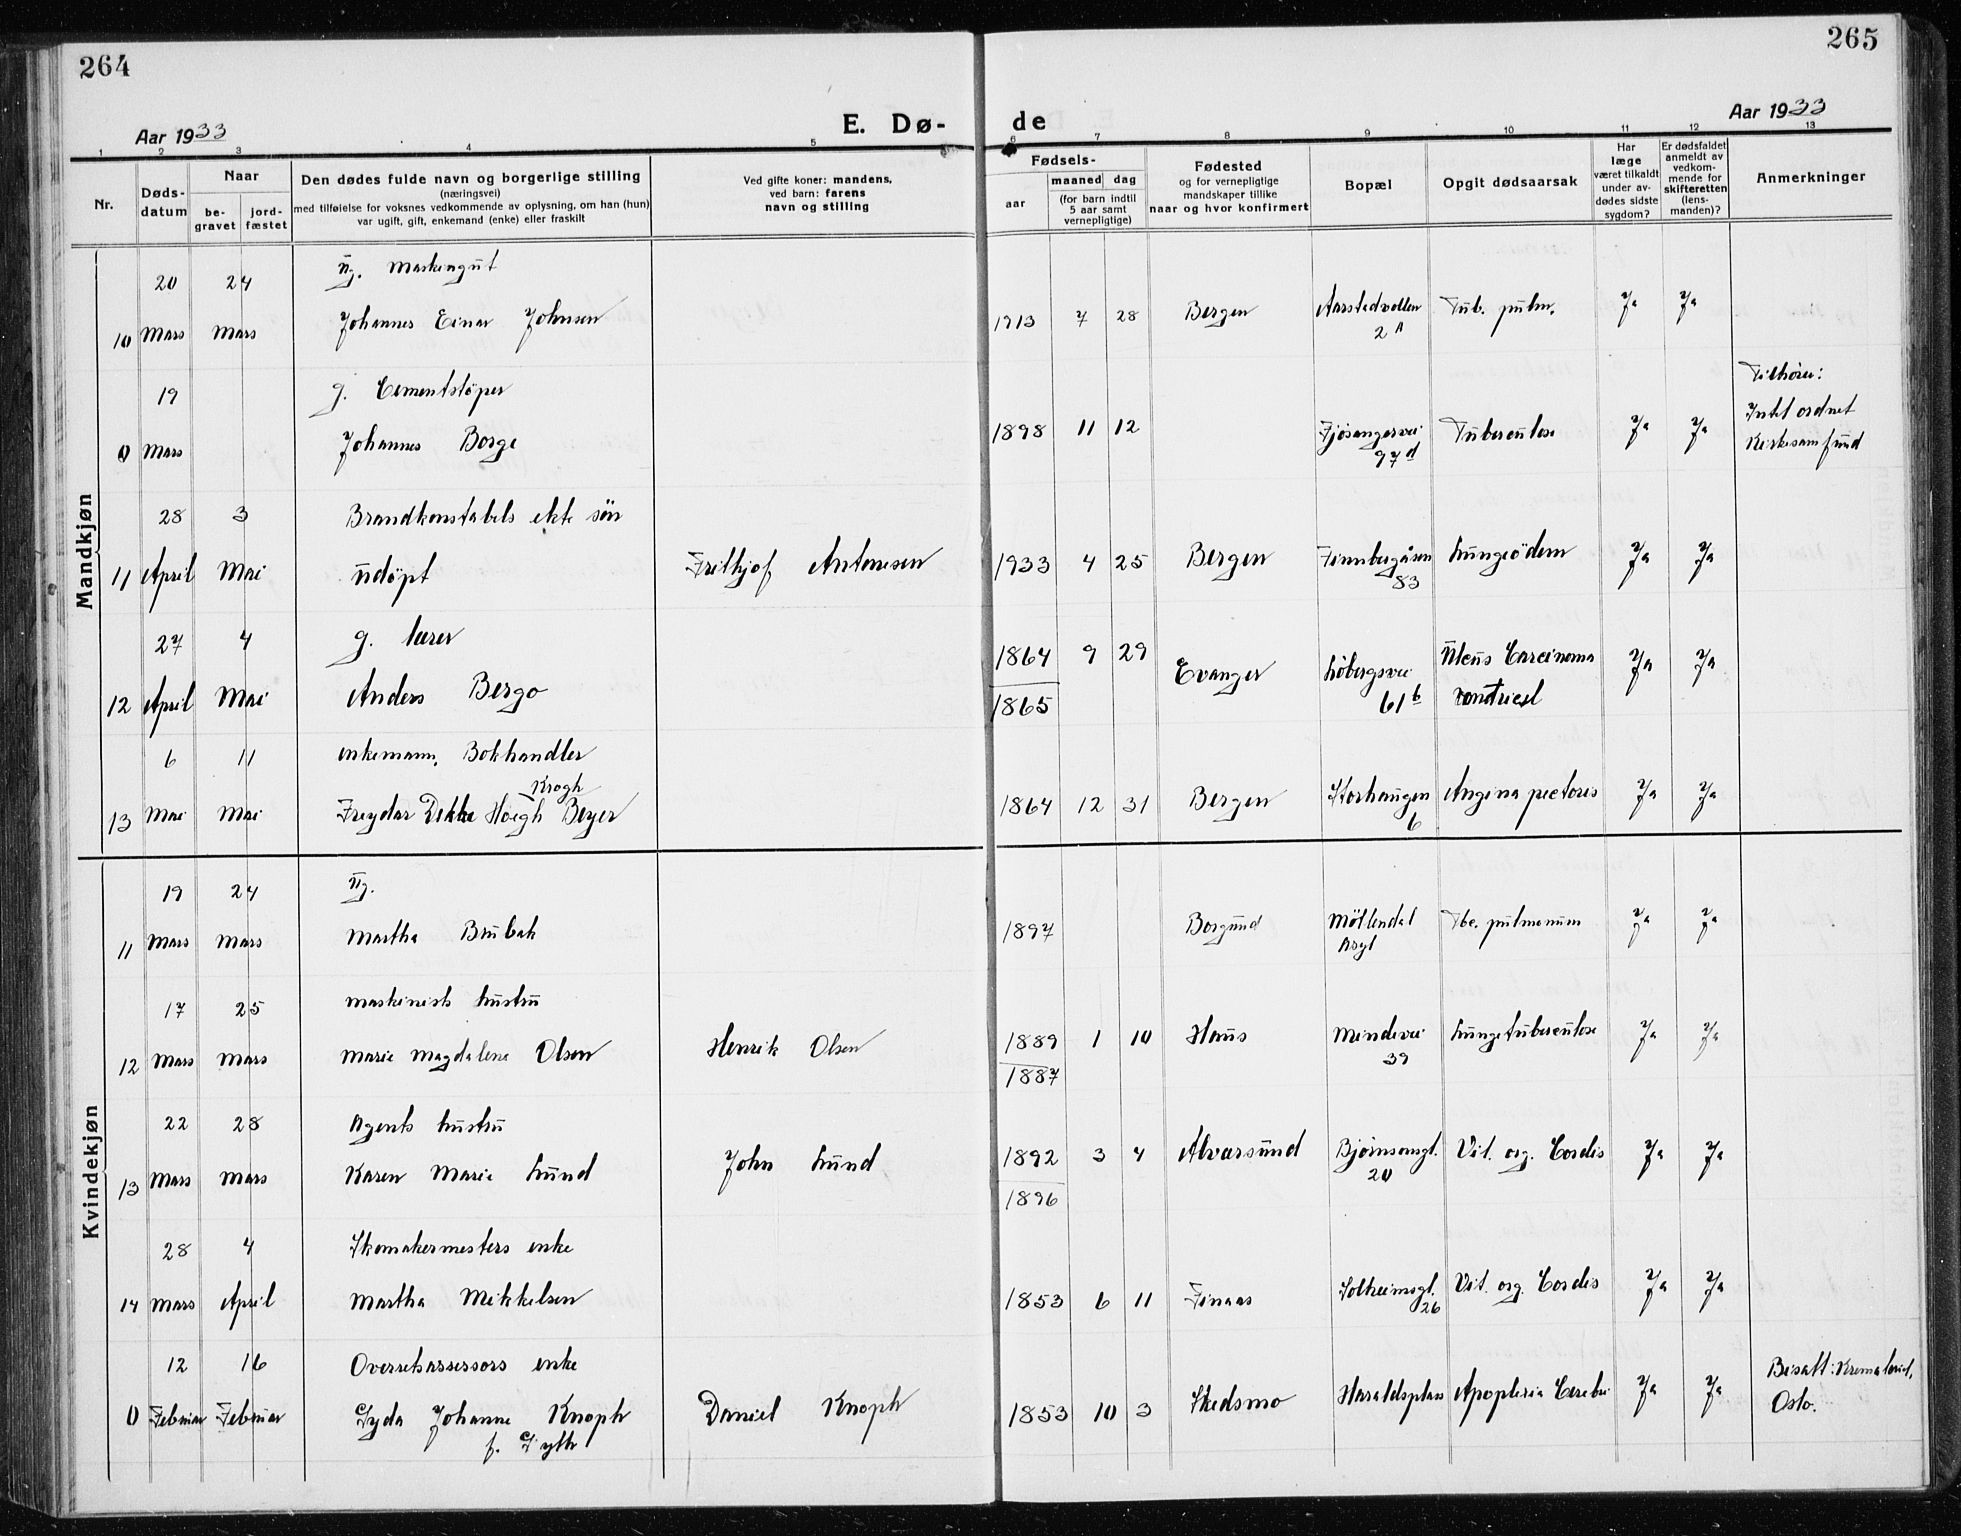 264
265
Aar 1933
E. Dø-
de
Aar 1933
1 2 3 4 5 6 7 8 9 10 11 12 13
Nr.
Døds-
datum
Naar
be-
gravet
jord-
fæstet
Den dødes fulde navn og borgerlige stilling
(næringsvei)
med tilføielse for voksnes vedkommende av oplysning, om han (hun)
var ugift, gift, enkemand (enke) eller fraskilt
Ved gifte koner: mandens,
ved barn: farens
navn og stilling
Fødsels-
aar
maaned dag
(for barn indtil
5 aar samt
vernepligtige)
Fødested
og for vernepligtige
mandskaper tillike
naar og hvor konfirmert
Bopæl
Opgit dødsaarsak
Har
læge
været tilkaldt
under av-
dødes sidste
sygdom?
Er dødsfaldet
anmeldt av
vedkom-
mende for
skifteretten
(lens-
manden)?
Anmerkninger
Mandkjøn
20 24 Ug. Maskingut
10 Mars Mars Johannes Einar Johnsen 1913 7 28 Bergen Aarstadvollen Tub. pulm. Ja Ja
2A
19 g. Cementstöper
0 Mars Johannes Borge 1898 11 12 Fjösangervei Tuberculose Ja Ja
97d
Tilhörer:
Intet ordnet
Kirkesamfund
28 3 Brandkonstabels ekte sön
11 April Mai udöpt Frithjof Antonesen 1933 4 25 Bergen Finnbergåsen Lungeödem Ja Ja
83
27 4 g. lærer
12 April Mai Anders Bergo 1864 9 29 Evanger Löbergsvei Ulcus Carcinoma Ja Ja
1865 61b ventricul
6 11 enkemann, Bokhandler
Krogh
13 Mai Mai Freydar Dekke Höegh Beyer 1864 12 31 Bergen Storhaugen Angina pectoris Ja Ja
6
Kvindekjøn
19 24 Ug.
11 Mars Mars Martha Brubak 1897 Borgund Möllendal Tbc. pulmonum Ja Ja
Asyl
17 25 Maskinists hustru
12 Mars Mars Marie Magdalene Olsen Henrik Olsen 1889 1 10 Haus Mindevei Lungetuberculose Ja Ja
1887 39
22 28 Agents hustru
13 Mars Mars Karen Marie Lund John Lund 1892 3 4 Alvarsund Bjørnsonsgt. Vit. org. Cordis Ja Ja
1896 20
28 4 Skomakermesters enke
14 Mars April Martha Mikkelsen 1853 6 11 Finaas Solheimsgt. Vit. org. Cordis Ja Ja
26
12 16 Overretsassessors enke
0 Februar Februar Lyda Johanne Knoph Daniel Knoph 1853 10 3 Skedsmo Haraldsplass Apoplexia Cerebri Ja Ja
f. Lyth
Bisatt: Krematoriet,
Oslo.